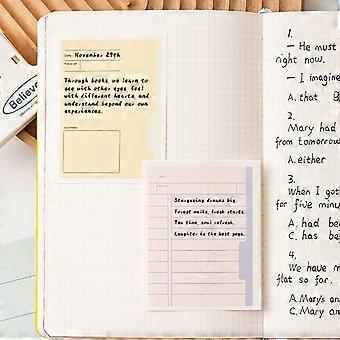 Believe
Date: November 29th
Through books, we learn to
see with other eyes, feel
with different hearts, and
understand beyond our own
experiences.
SUMMARY
Stargazing dreams big.
Forest walks, fresh starts.
Tea time, soul refresh.
Laughter is the best yoga.
1.
- He must
right now.
- I imagine
A. that B
2.
Mary had
from tomorrow
A. either
3.
When I got
for five minu
A. had bee
C. has be
4.
We have m
flat so far.
A. Mary's an
C. Mary an